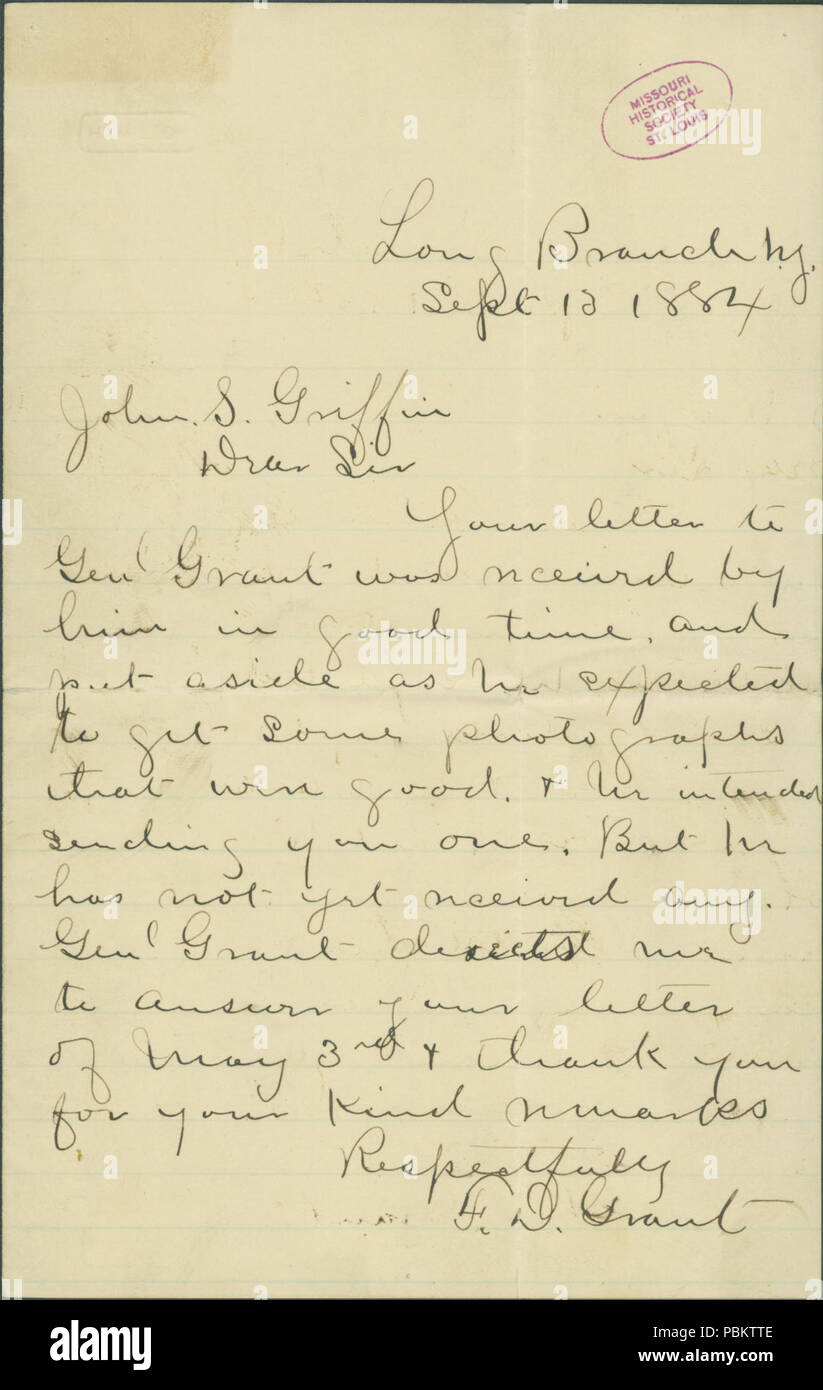 MISSOURI
HISTORICAL
SOCIETY
ST. LOUIS
Long Branch N.J.
Sept 13 1884
John. S. Griffin
Dear Sir
Your letter to
Genl Grant was received by
him in good time, and
put aside as he expected
to get some photographs
that were good. & he intended
sending you one. But he
has not yet received any.
Genl Grant me
to answer your letter
of May 3rd & thank you
for your kind remarks
Respectfully
F. D. Grant
alamy
Image ID: PBKTTE
www.alamy.com